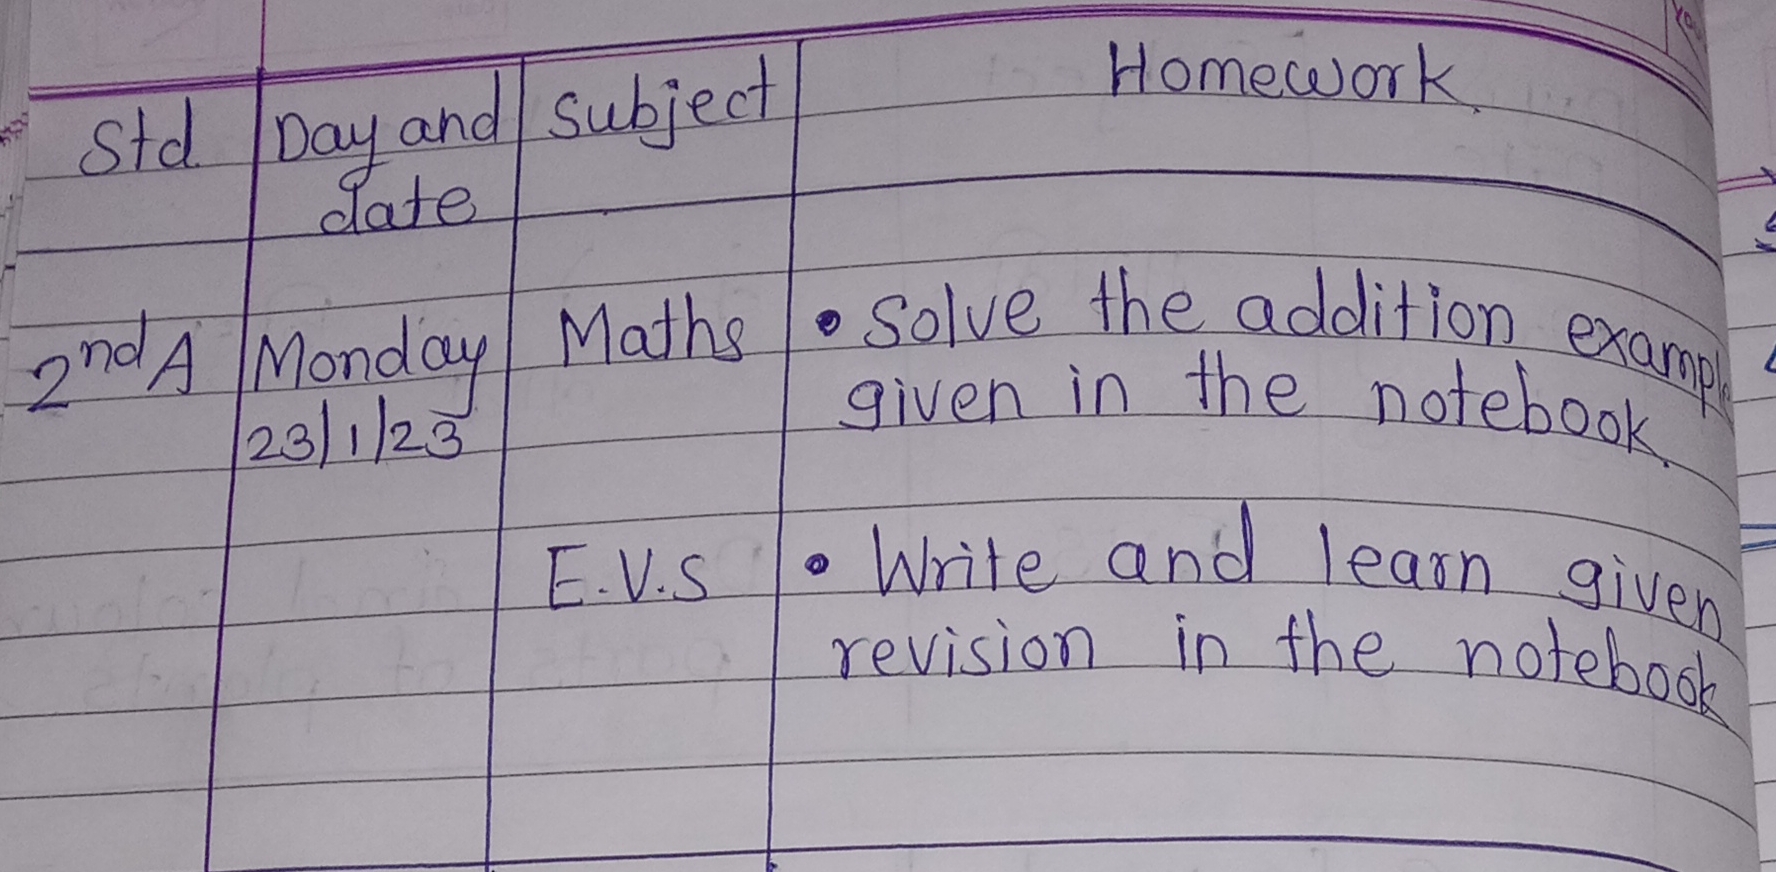 Std. Day and date Subject Homework.
2nd A Monday 23/1/23 Maths • Solve the addition example
given in the notebook.
E.V.S • Write and learn given
revision in the notebook